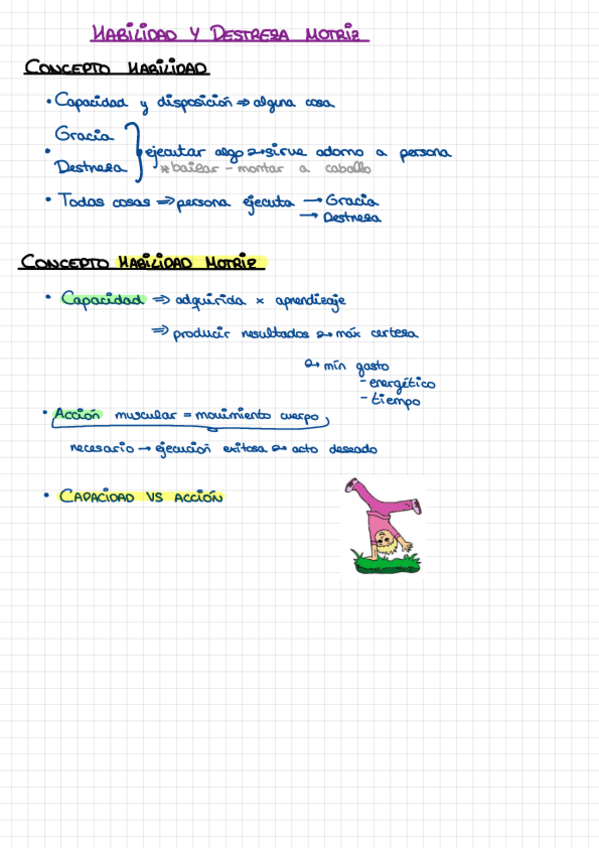 HABILIDAD Y DESTREZA MOTRIZ
CONCEPTO HABILIDAD
• Capacidad y disposición ⇒ alguna cosa
Gracia
• ejecutar algo → sirve adorno a persona
Destreza *bailar - montar a caballo
• Todas cosas ⇒ persona ejecuta → Gracia
→ Destreza
CONCEPTO HABILIDAD MOTRIZ
• Capacidad ⇒ adquirida x aprendizaje
⇒ producir resultados → máx certeza
→ mín gasto
- energético
- tiempo
• Acción muscular = movimiento cuerpo
necesario → ejecución exitosa → acto deseado
• CAPACIDAD VS ACCIÓN